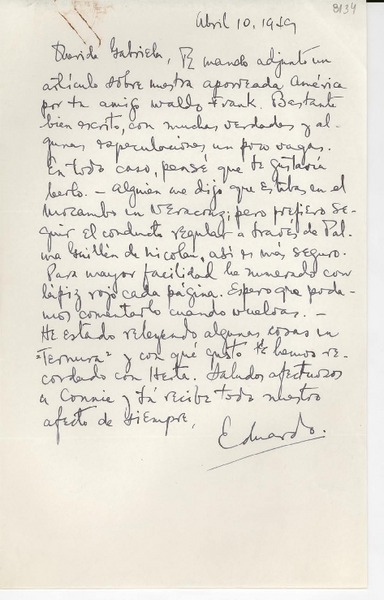 8134
Abril 10, 1949
Querida Gabriela, Te mando adjunto un
artículo sobre nuestra aporreada América
por tu amigo Wally Frank. Bastante
bien escrito, con muchas verdades y al-
gunas especulaciones un poco vagas.
En todo caso, pensé que te gustaría
leerlo. – Alguien me dijo que estabas en el
Mocambo en Veracruz; pero prefiero se-
guir el conducto regular a través de Pal-
ma Guillén de Nicolau, así es más seguro.
Para mayor facilidad he numerado con
lápiz rojo cada página. Espero que poda-
mos comentarlo cuando vuelvas. –
He estado releyendo algunas cosas en
"Ternura" y con qué gusto te hemos re-
cordado con Herta. Saludos afectuosos
a Connie y tú recibe todo nuestro
afecto de siempre,
Eduardo.